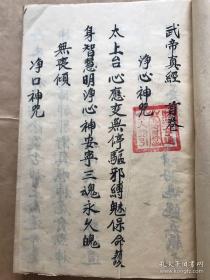 武帝真經 首卷
淨心神咒
太上台心應变無停驅邪縛魅保命護
身智慧明淨心神安寧三魂永久魄
無丧傾
净口神咒